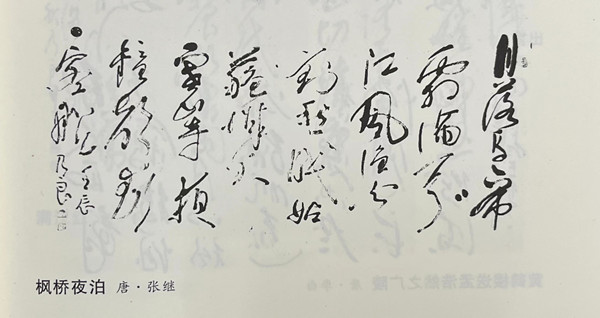 月落乌啼
霜满天
江風渔火
对愁眠姑
蘇城外
寒山寺夜
鐘聲到
客船
壬辰
枫桥夜泊 唐·张继